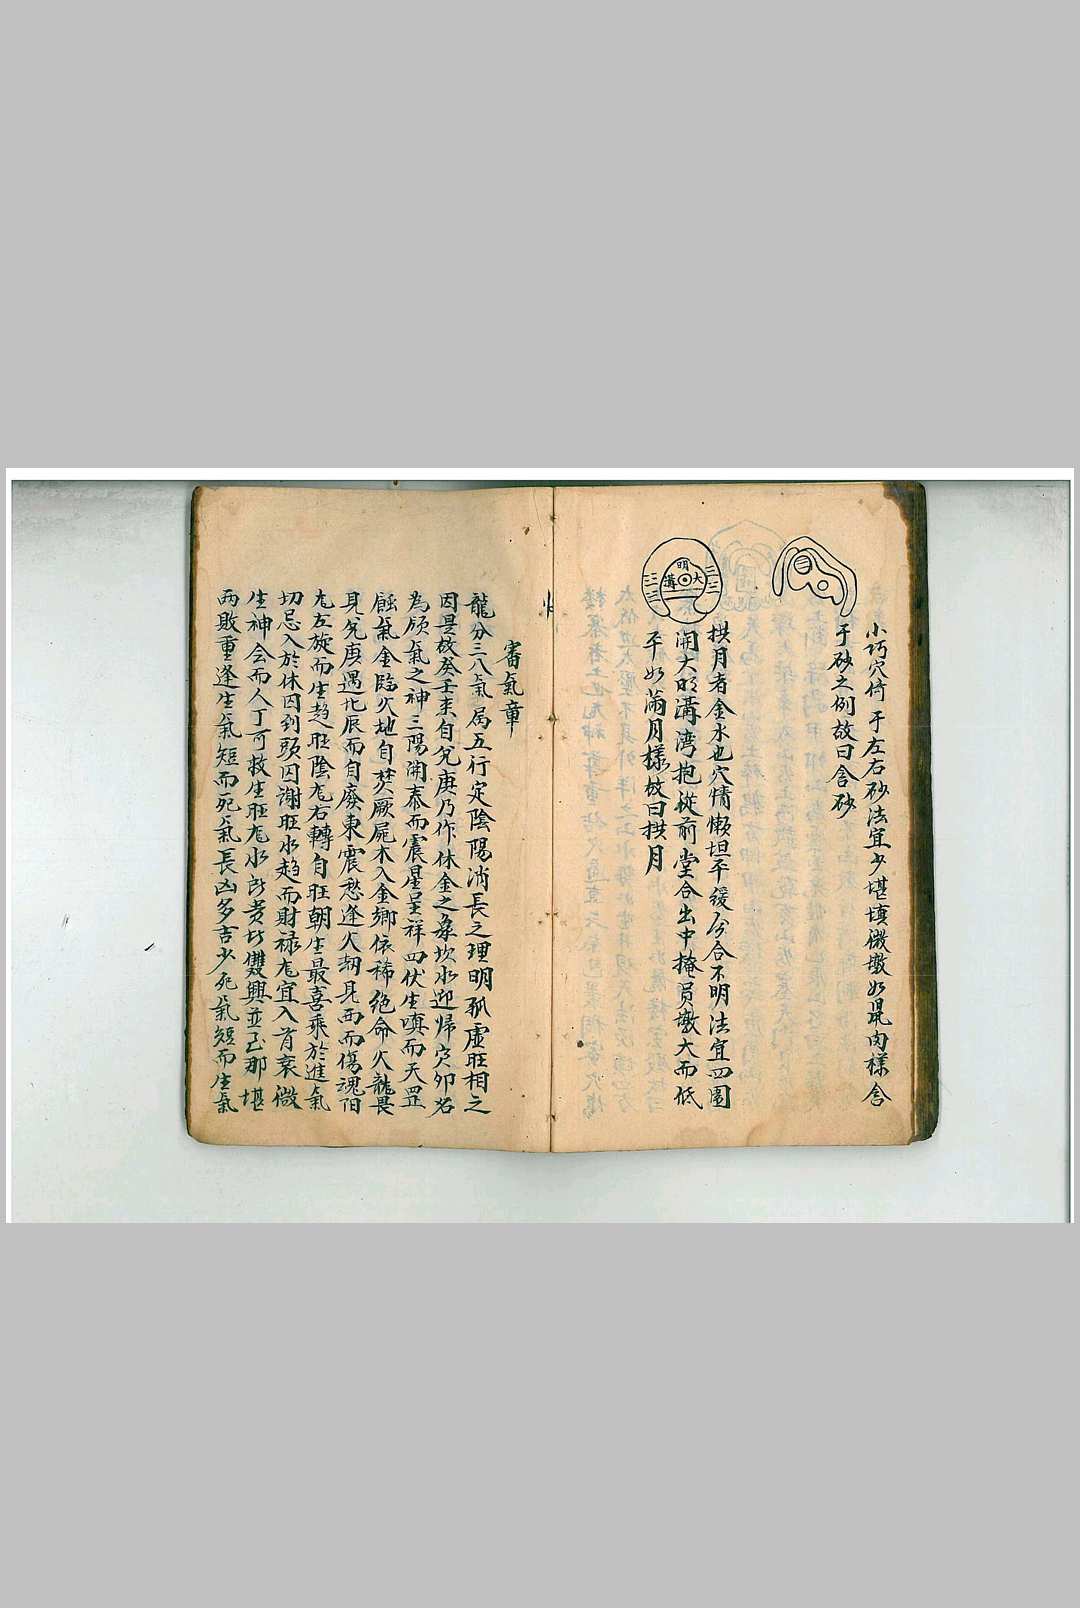 小巧穴倚于左右砂法宜少堪填微墩如鼠肉様舍
于砂之例故曰舍砂
明
大
溝
拱月者金水也穴情懒坦平緩分合不明法宜四圍
開大明溝湾抱從前堂合出中掩員墩大而低
平如滿月樣故曰拱月
審氣章
龍分三八氣局五行定陰陽消長之理明孤虚旺相之
因是故癸壬来自兌庚乃作体金之象坎水迎歸寅卯名
為領氣之神三陽開泰而震星呈祥四伏生嗔而天罡
蝕氣金臨火地自焚厥屍木入金鄉依稀絶命火龍畏
見兌庚遇北辰而自廢東震愁逢火刼見西而傷魂陽
左旋而生趋旺陰右轉自旺朝生最喜乘於進氣
切忌入於休囚到頭囚謝旺水趋而財禄宜入首衰微
生神会而人丁可救生旺水貴雙興並已那堪
両敗重逢生氣短而死氣長凶多吉少死氣短而生氣